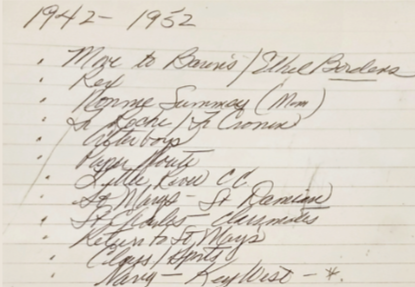 1942 - 1952
• Move to Baron's / Ethel Borders
• Rex
• Normie Summay (Mim)
• Fr Roche / Fr Cronin
• Alterboys
• Paper Route
• Little River CC
• St Marys - St Damian
• St Charles - Classmates
• Return to St Marys
• Class / Sports
• Navy - Key West - *.